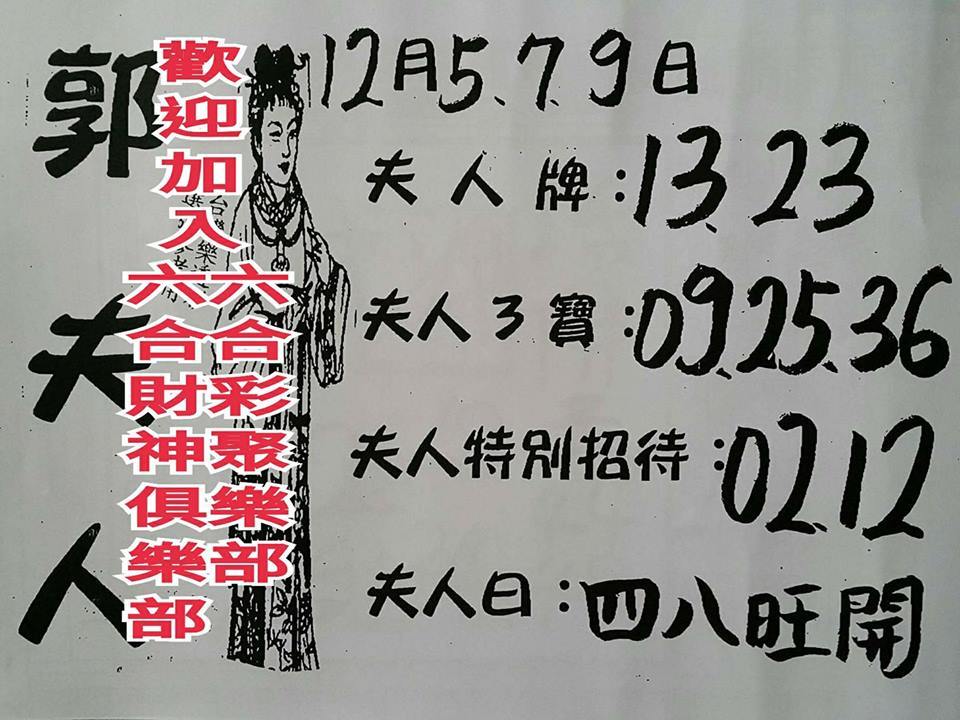 郭夫人
歡迎加入
六合彩聚樂部
六合財神俱樂部
12月5.7.9日
夫人牌:13.23
夫人3寶:09.25.36
夫人特別招待:02.12
夫人曰:四八旺開